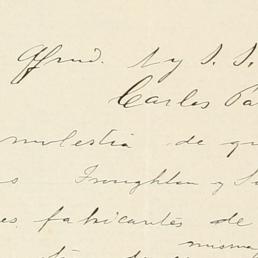 Afmo. y S. S.
Carlos Pa
molestia de qu
s Troughton y Si
es fabricantes de
misma